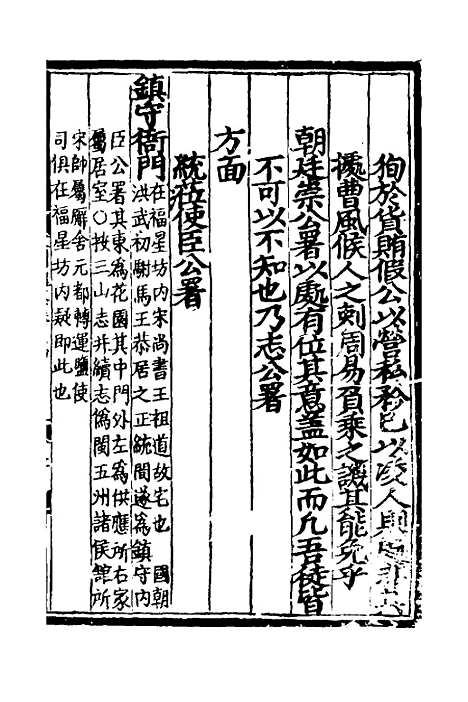 徇於貨賄假公以營私矜己以陵人則
擬曹風候人之刺周易負乗之譏其能免乎
朝廷崇公署以處有位其意盖如此而凡吾徒皆
不可以不知也乃志公署
方面
統蒞使臣公署
鎮守衙門在福星坊内宋尚書王祖道故宅也 國朝
洪武初駙馬王恭居之正統間遂為鎮守内
臣公署其東為花園其中門外左為供應所右家
屬居室○按三山志并續志偽閩五州諸侯館所
宋帥屬廨舍元都轉運鹽使
司俱在福星坊内疑即此也